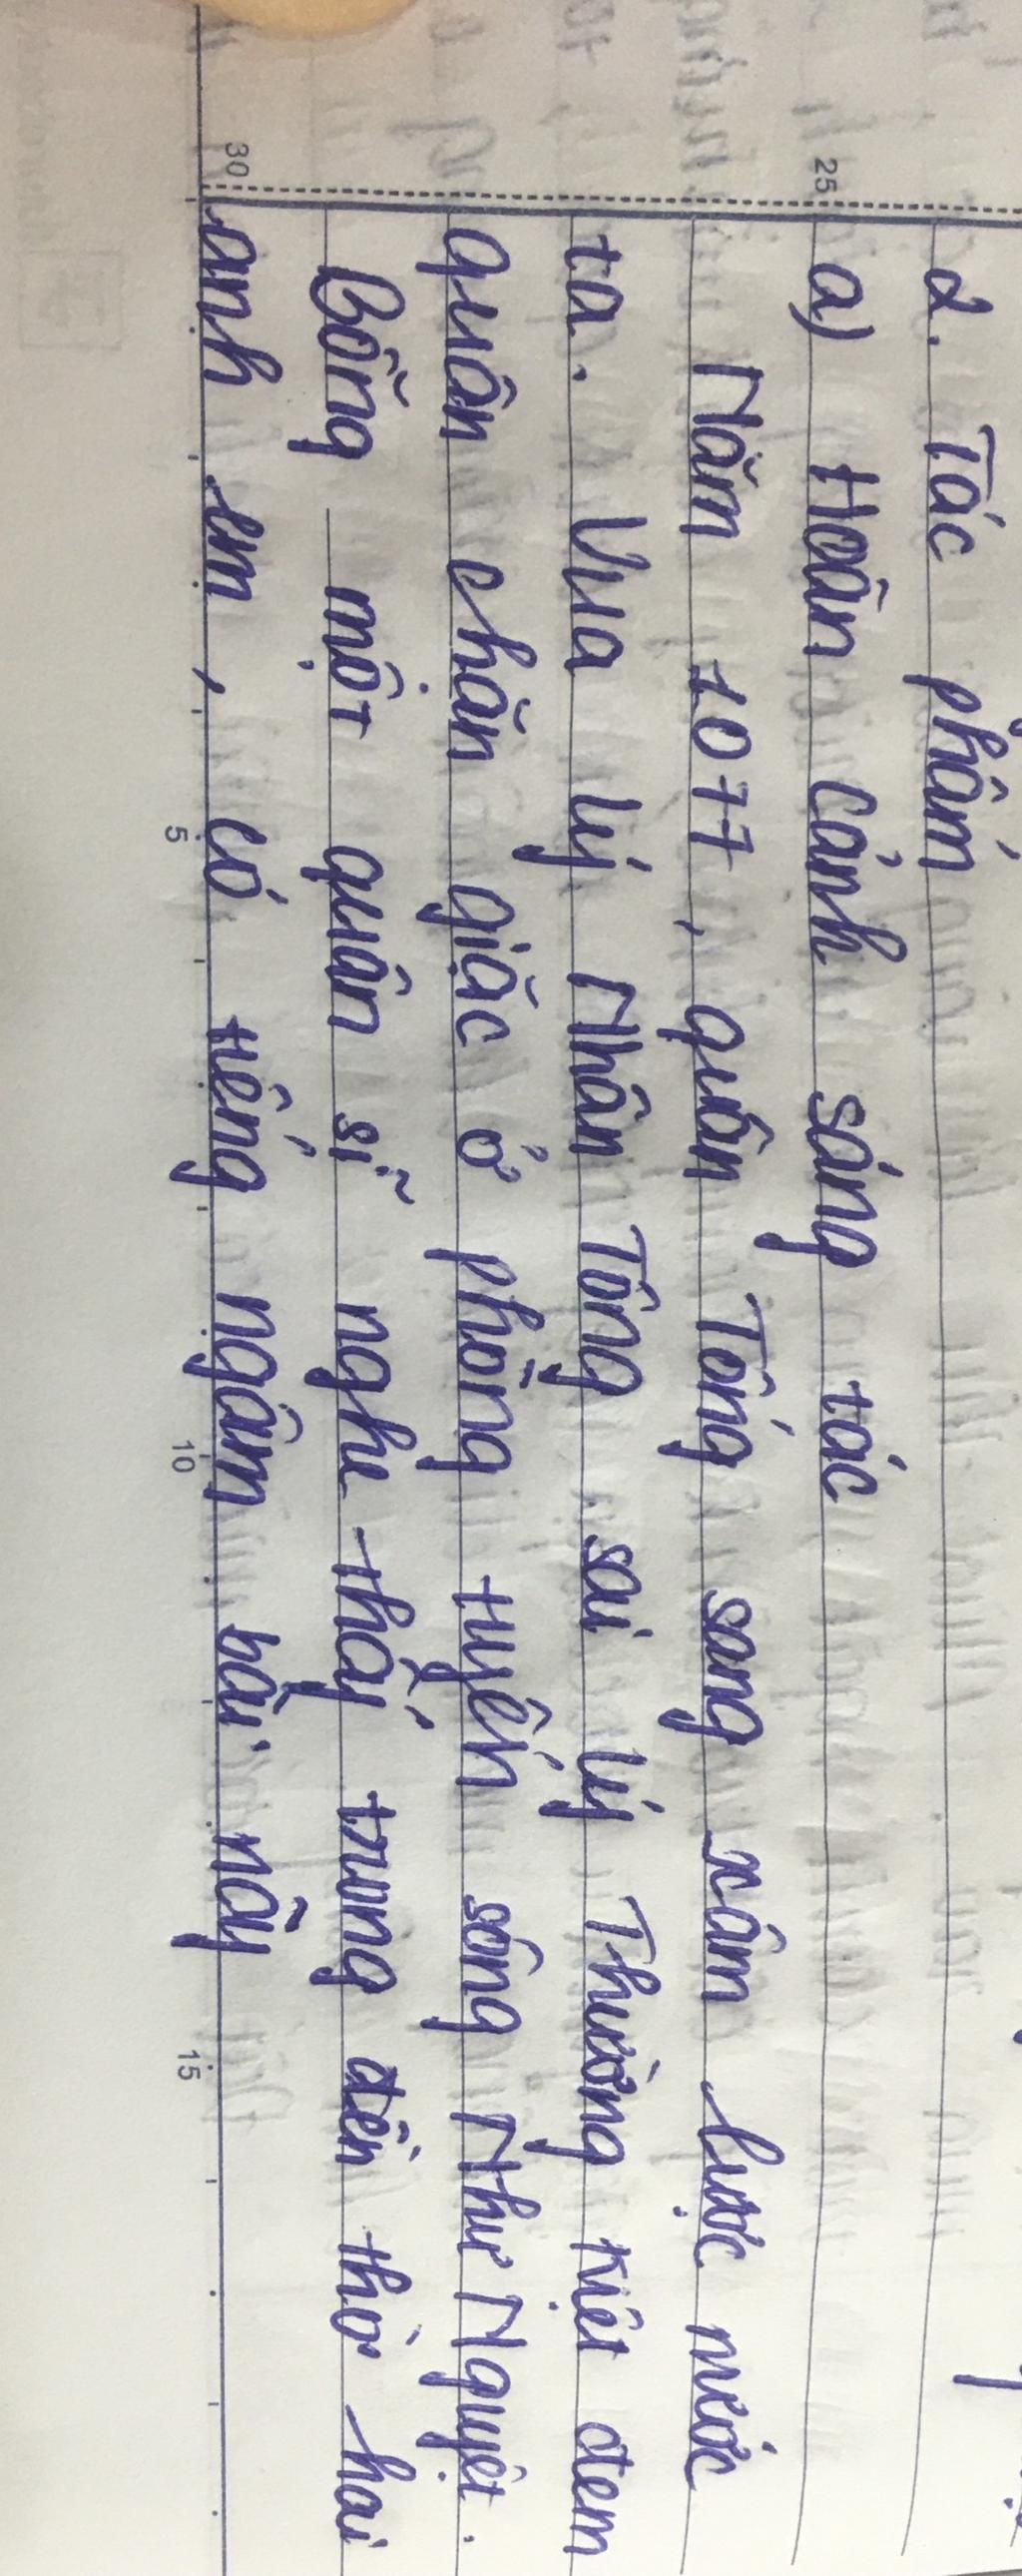 2. Tác phẩm
a) Hoàn cảnh sáng tác
Năm 1077, quân Tống sang xâm lược nước
ta. Vua Lý Nhân Tông sai Lý Thường Kiệt đem
quân chặn giặc ở phòng tuyến sông Như Nguyệt.
Bỗng một quân sĩ nghe thấy trong đền thờ hai
anh em, có tiếng ngâm bài này
25
30
5
10
15